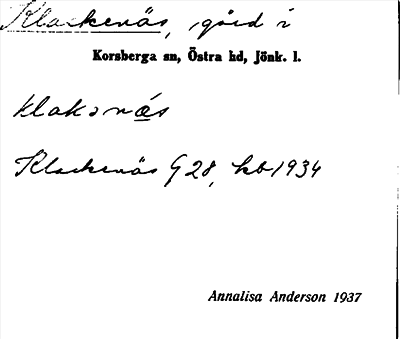 Klackenäs, gård i
Korsberga sn, Östra hd, Jönk. l.
klakənæ̀s
Klackenäs G 28, kb 1934
Annalisa Anderson 1937